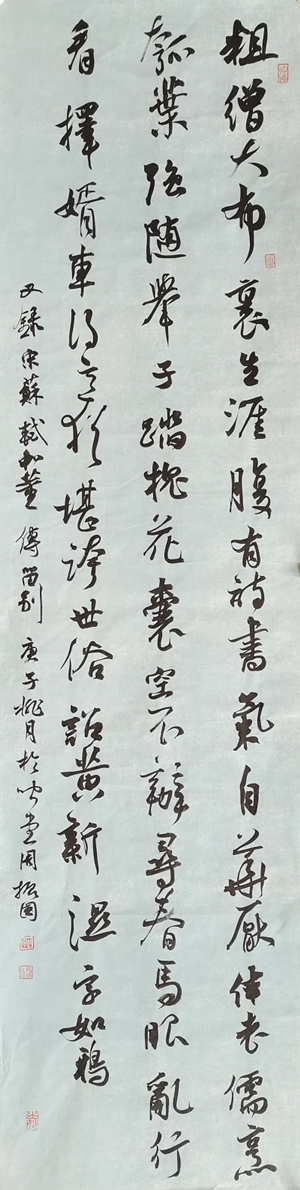 粗繒大布裹生涯腹有詩書氣自華厭伴老儒烹
瓠葉強隨舉子踏槐花囊空不辦尋春馬眼亂行
看擇婿車得意猶堪誇世俗詔黃新濕字如鴉
又錄宋蘇軾和董傳留別 庚子桃月於堂周振國